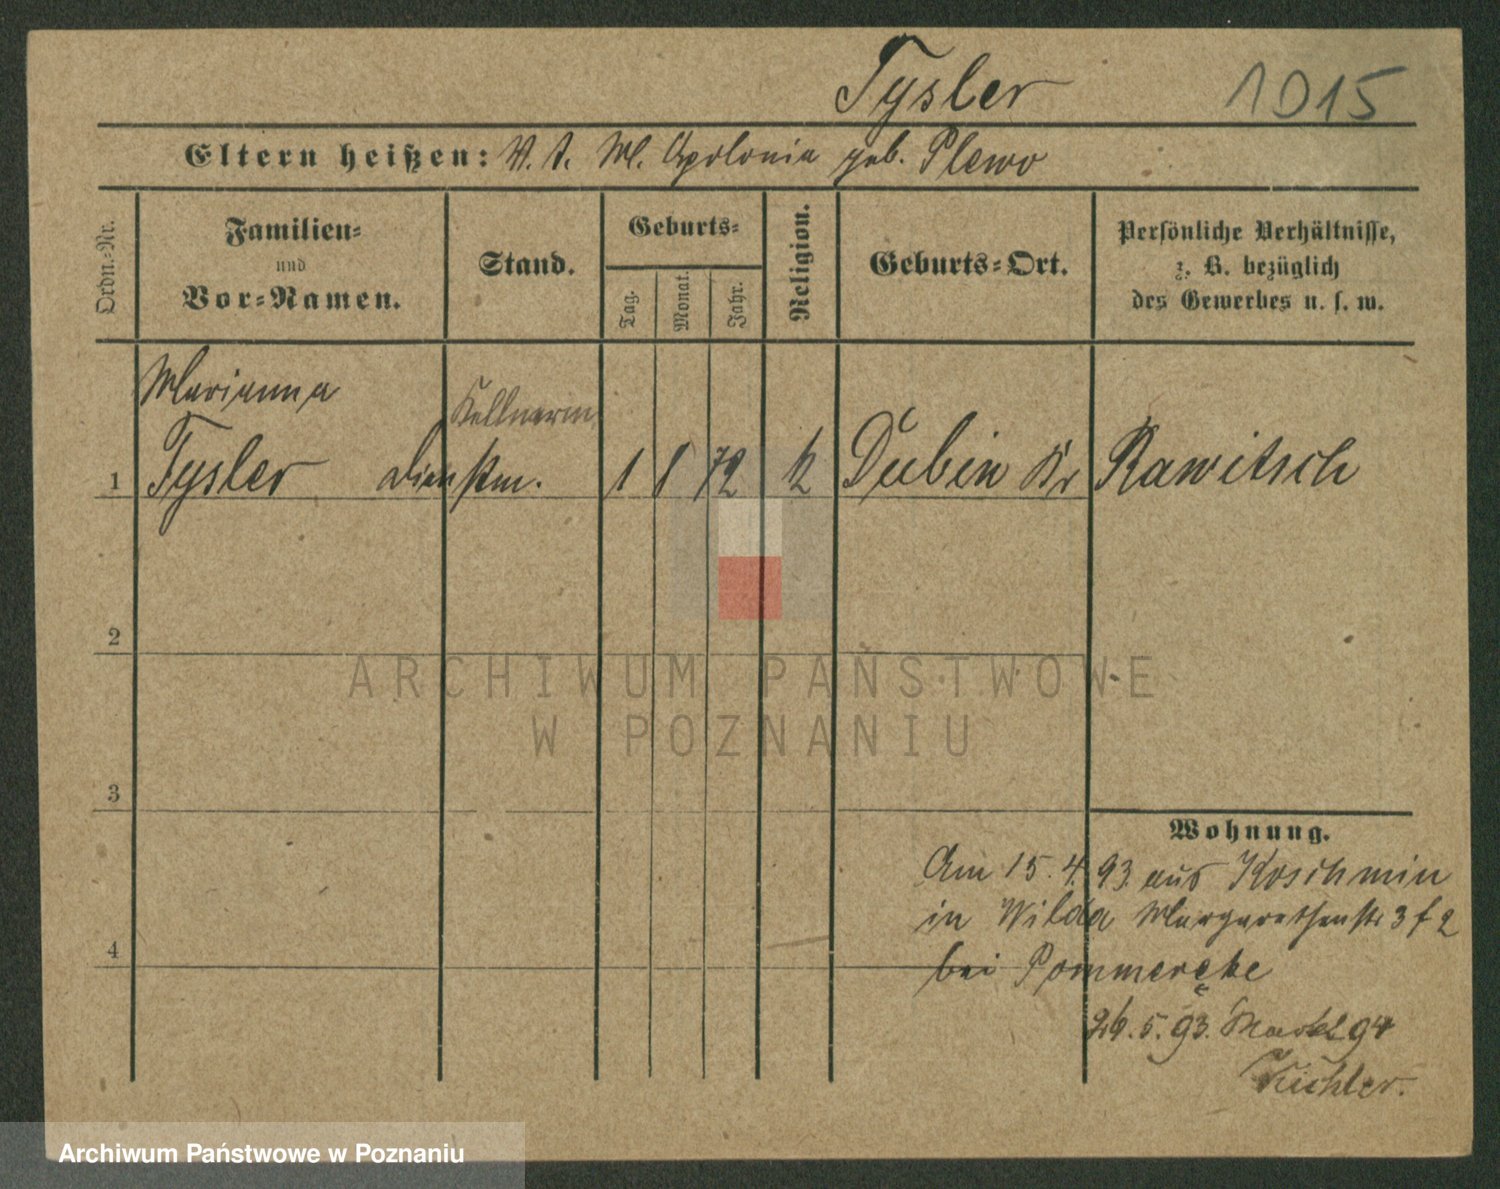 Tysler 1015
Eltern heißen: V. t. M. Apolonia geb. Plewo
Ordn.-Nr.
Familien-
und
Vor-Namen.
Stand.
Geburts-
Tag.
Monat.
Jahr.
Religion.
Geburts-Ort.
Persönliche Verhältnisse,
z. B. bezüglich
des Gewerbes u. s. w.
Marianna
Kellnerin
1 Tysler Dienstm. 1 8 72 k Dubin Kr Rawitsch
2
ARCHIWUM PAŃSTWOWE
W POZNANIU
3
Wohnung.
Am 15.4.93. aus Koschmin
in Wilda Margarethenstr 3
4
bei Pommerehe
26.5.93. Markt 94
Archiwum Państwowe w Poznaniu